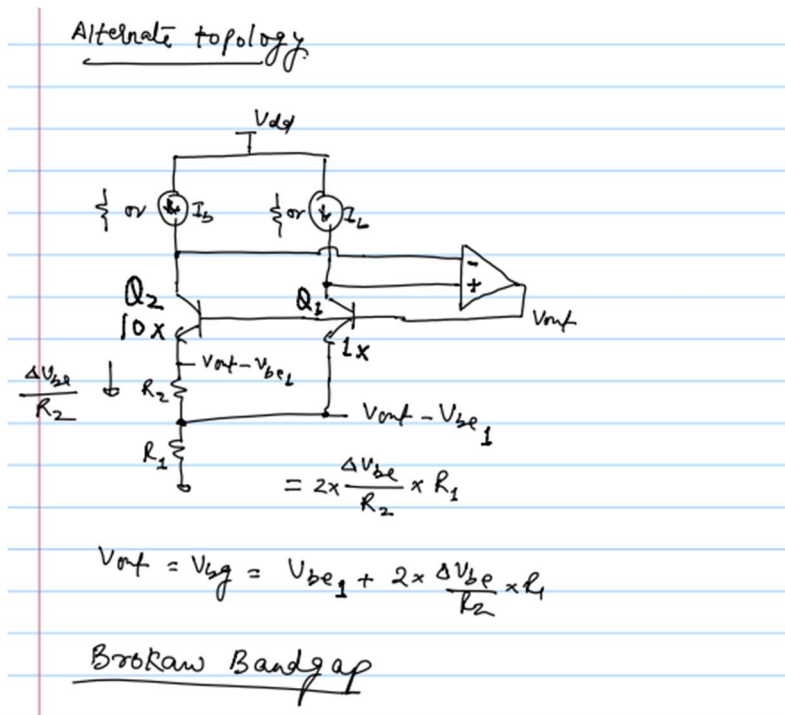 Alternate topology
Vdd
or Ib or Ib
-
+
Q2 Q1
10x
Vout
1x
Vout - Vbe2
ΔVbe/R2
R2
Vout - Vbe1
R1
= 2x ΔVbe/R2 x R1
Vout = Vbg = Vbe1 + 2x ΔVbe/R2 x R1
Brokaw Bandgap